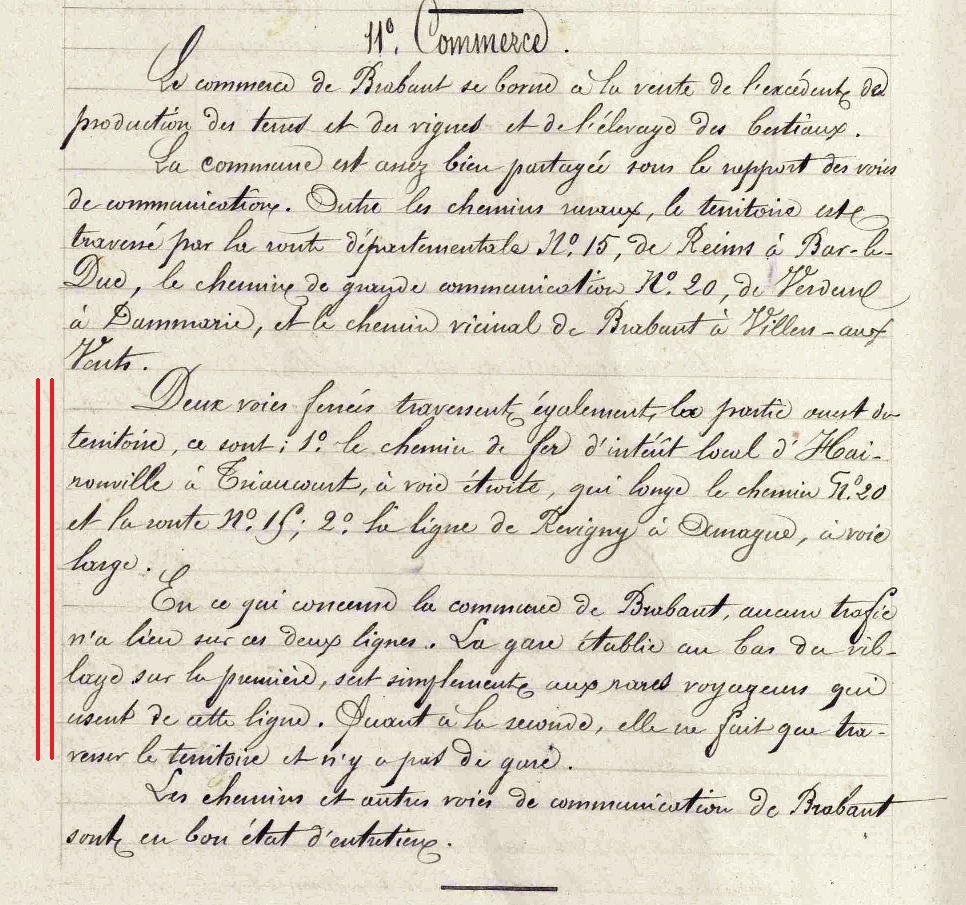 11º. Commerce.
Le commerce de Brabant se borne à la vente de l'excédent de
production des terres et des vignes et de l'élevage des bestiaux.
La commune est assez bien partagée sous le rapport des voies
de communication. Outre les chemins ruraux, le territoire est
traversé par la route départementale Nº. 15, de Reims à Bar-le-
Duc, le chemin de grande communication Nº. 20, de Verdun
à Dammarie, et le chemin vicinal de Brabant à Villers-aux
Vents.
Deux voies ferrées traversent également la partie ouest du
territoire, ce sont : 1º. le chemin de fer d'intérêt local d'Hai-
ronville à Triaucourt, à voie étroite, qui longe le chemin Nº. 20
et la route Nº. 15; 2º. la ligne de Revigny à Amagne, à voie
large.
En ce qui concerne la commune de Brabant, aucun trafic
n'a lieu sur ces deux lignes. La gare établie au bas du vil-
lage sur la première, sert simplement aux rares voyageurs qui
usent de cette ligne. Quant à la seconde, elle ne fait que tra-
verser le territoire et n'y a pas de gare.
Les chemins et autres voies de communication de Brabant
sont en bon état d'entretien.